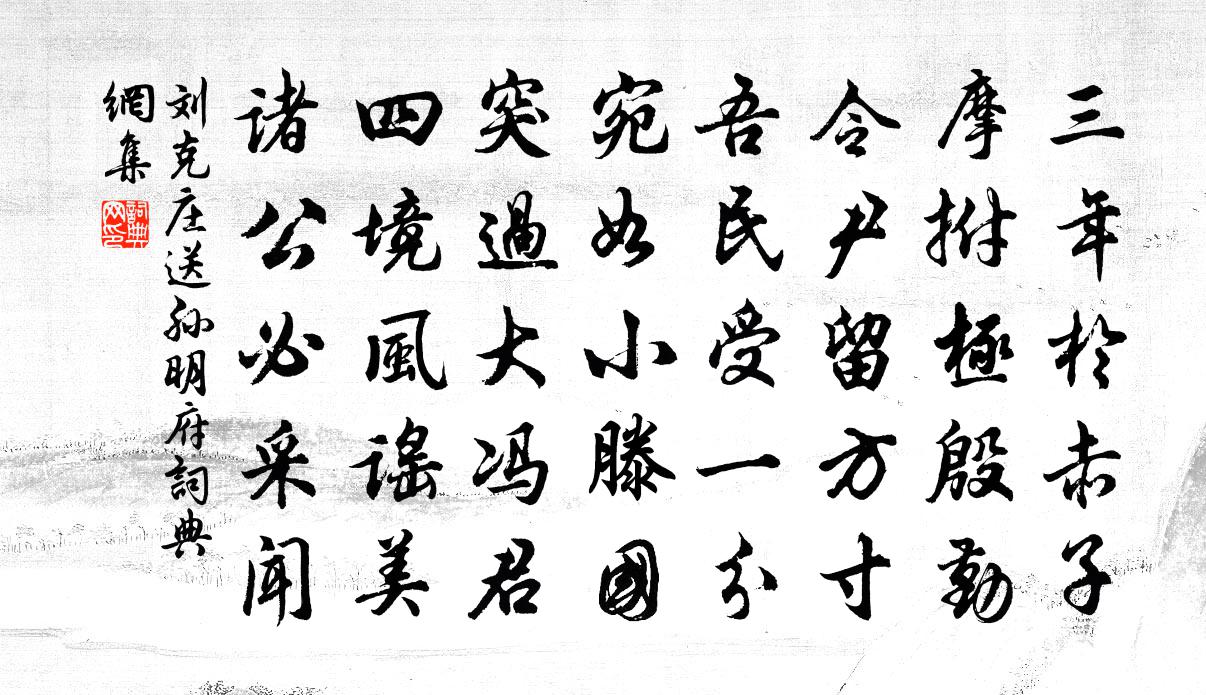 三年於赤子
摩拊極殷勤
令尹留方寸
吾民受一分
宛如小滕國
突過大冯君
四境風謡美
诸公必采闻
刘克庄送孙明府詞典
網集
詞典網印